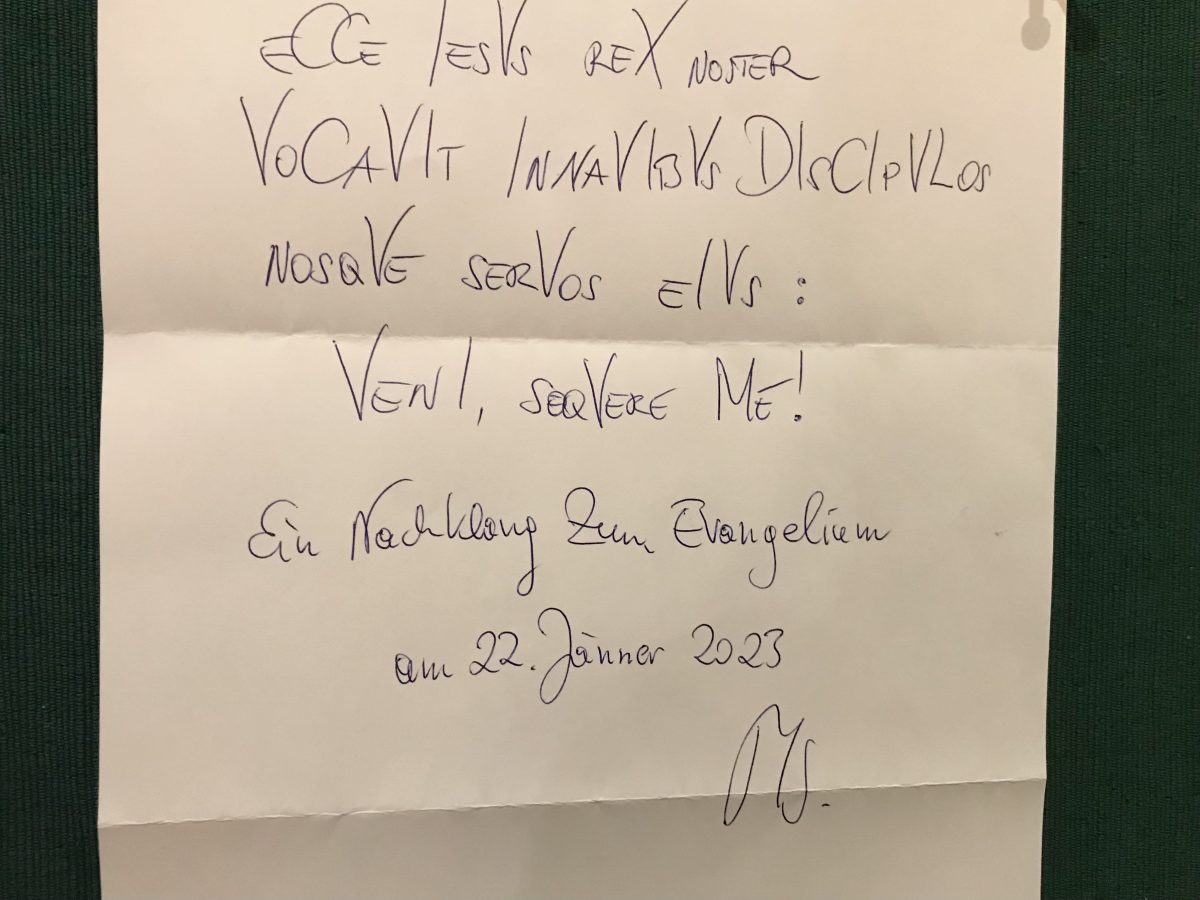 ECCE IESVS REX NOSTER
VOCAVIT INNAVIBVS DISCIPVLOS
NOSQVE SERVOS EIVS :
VENI, SEQVERE ME!
Ein Nachklang zum Evangelium
am 22. Jänner 2023